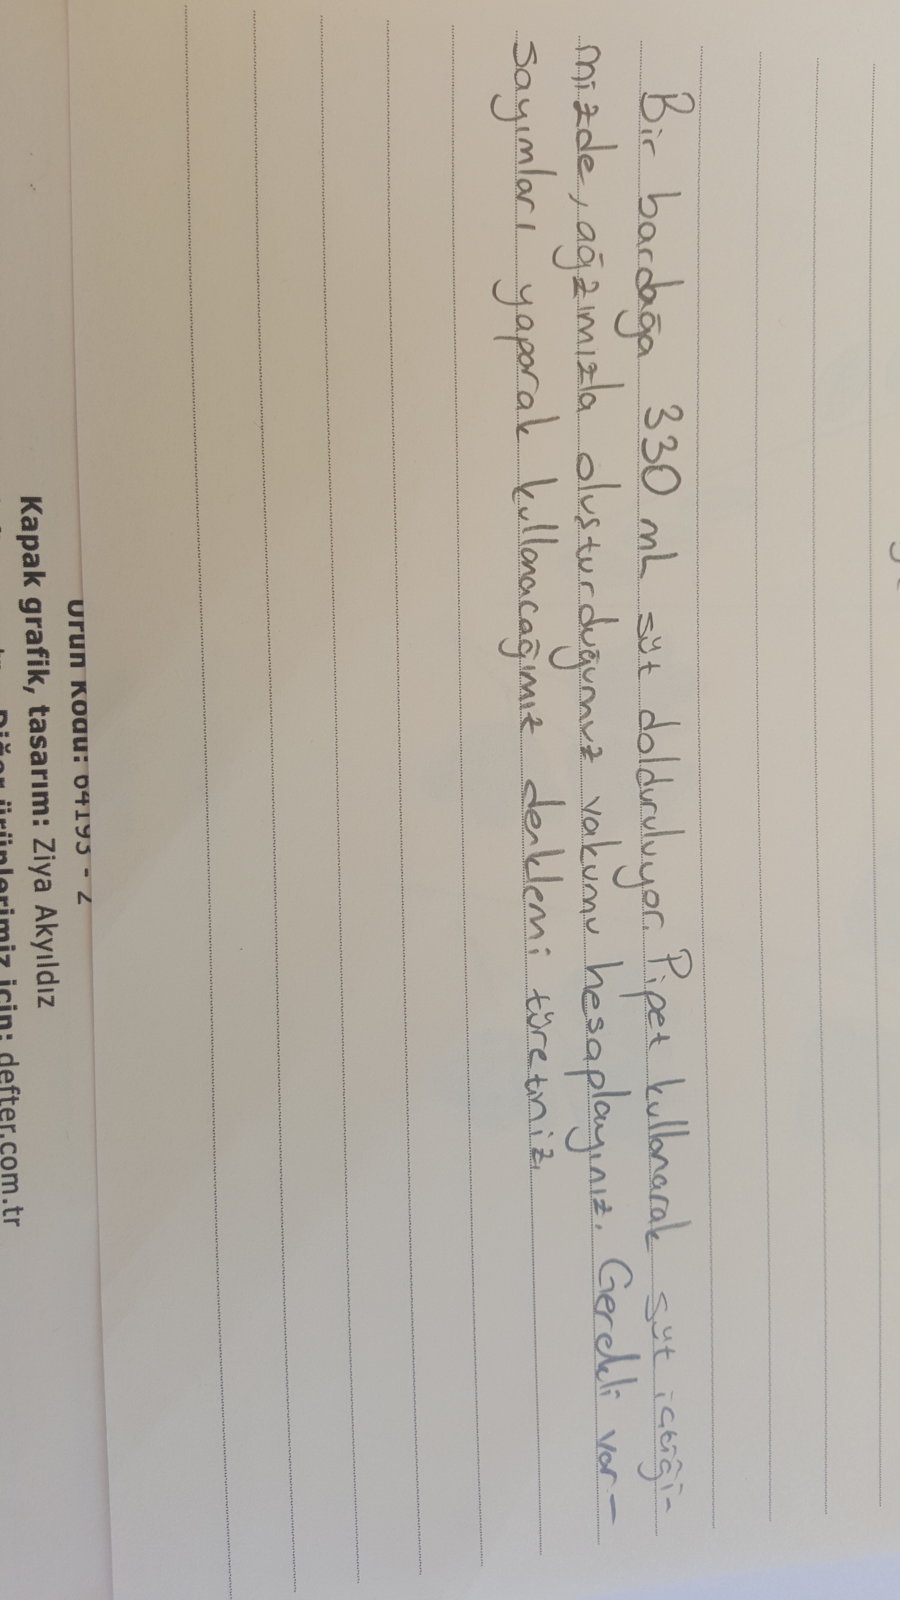 Bir bardağa 330 mL süt dolduruluyor. Pipet kullanarak süt içtiği-
mizde, ağzımızla oluşturduğumuz vakumu hesaplayınız. Gerekli var-
sayımları yaparak kullanacağımız denklemi türetiniz.
Ürün Kodu: 64193 - 2
Kapak grafik, tasarım: Ziya Akyıldız
Diğer ürünlerimiz için: defter.com.tr